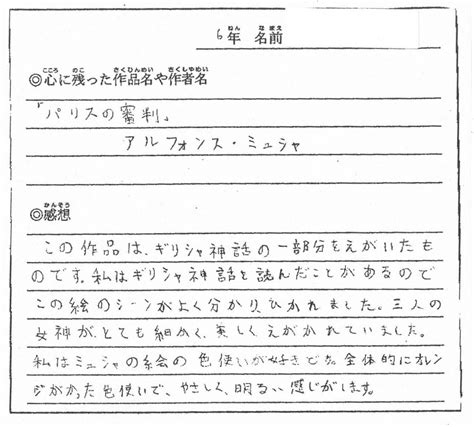 6年 名前
◎心に残った作品名や作者名
「パリスの審判」
アルフォンス・ミュシャ
◎感想
この作品は、ギリシャ神話の一部分をえがいたも
のです。私はギリシャ神話を読んだことがあるので
この絵のシーンがよく分かり、ひかれました。三人の
女神が、とても細かく、美しくえがかれていました。
私はミュシャの絵の色使いが好きです。全体的にオレン
ジがかった色使いで、やさしく、明るい感じがします。